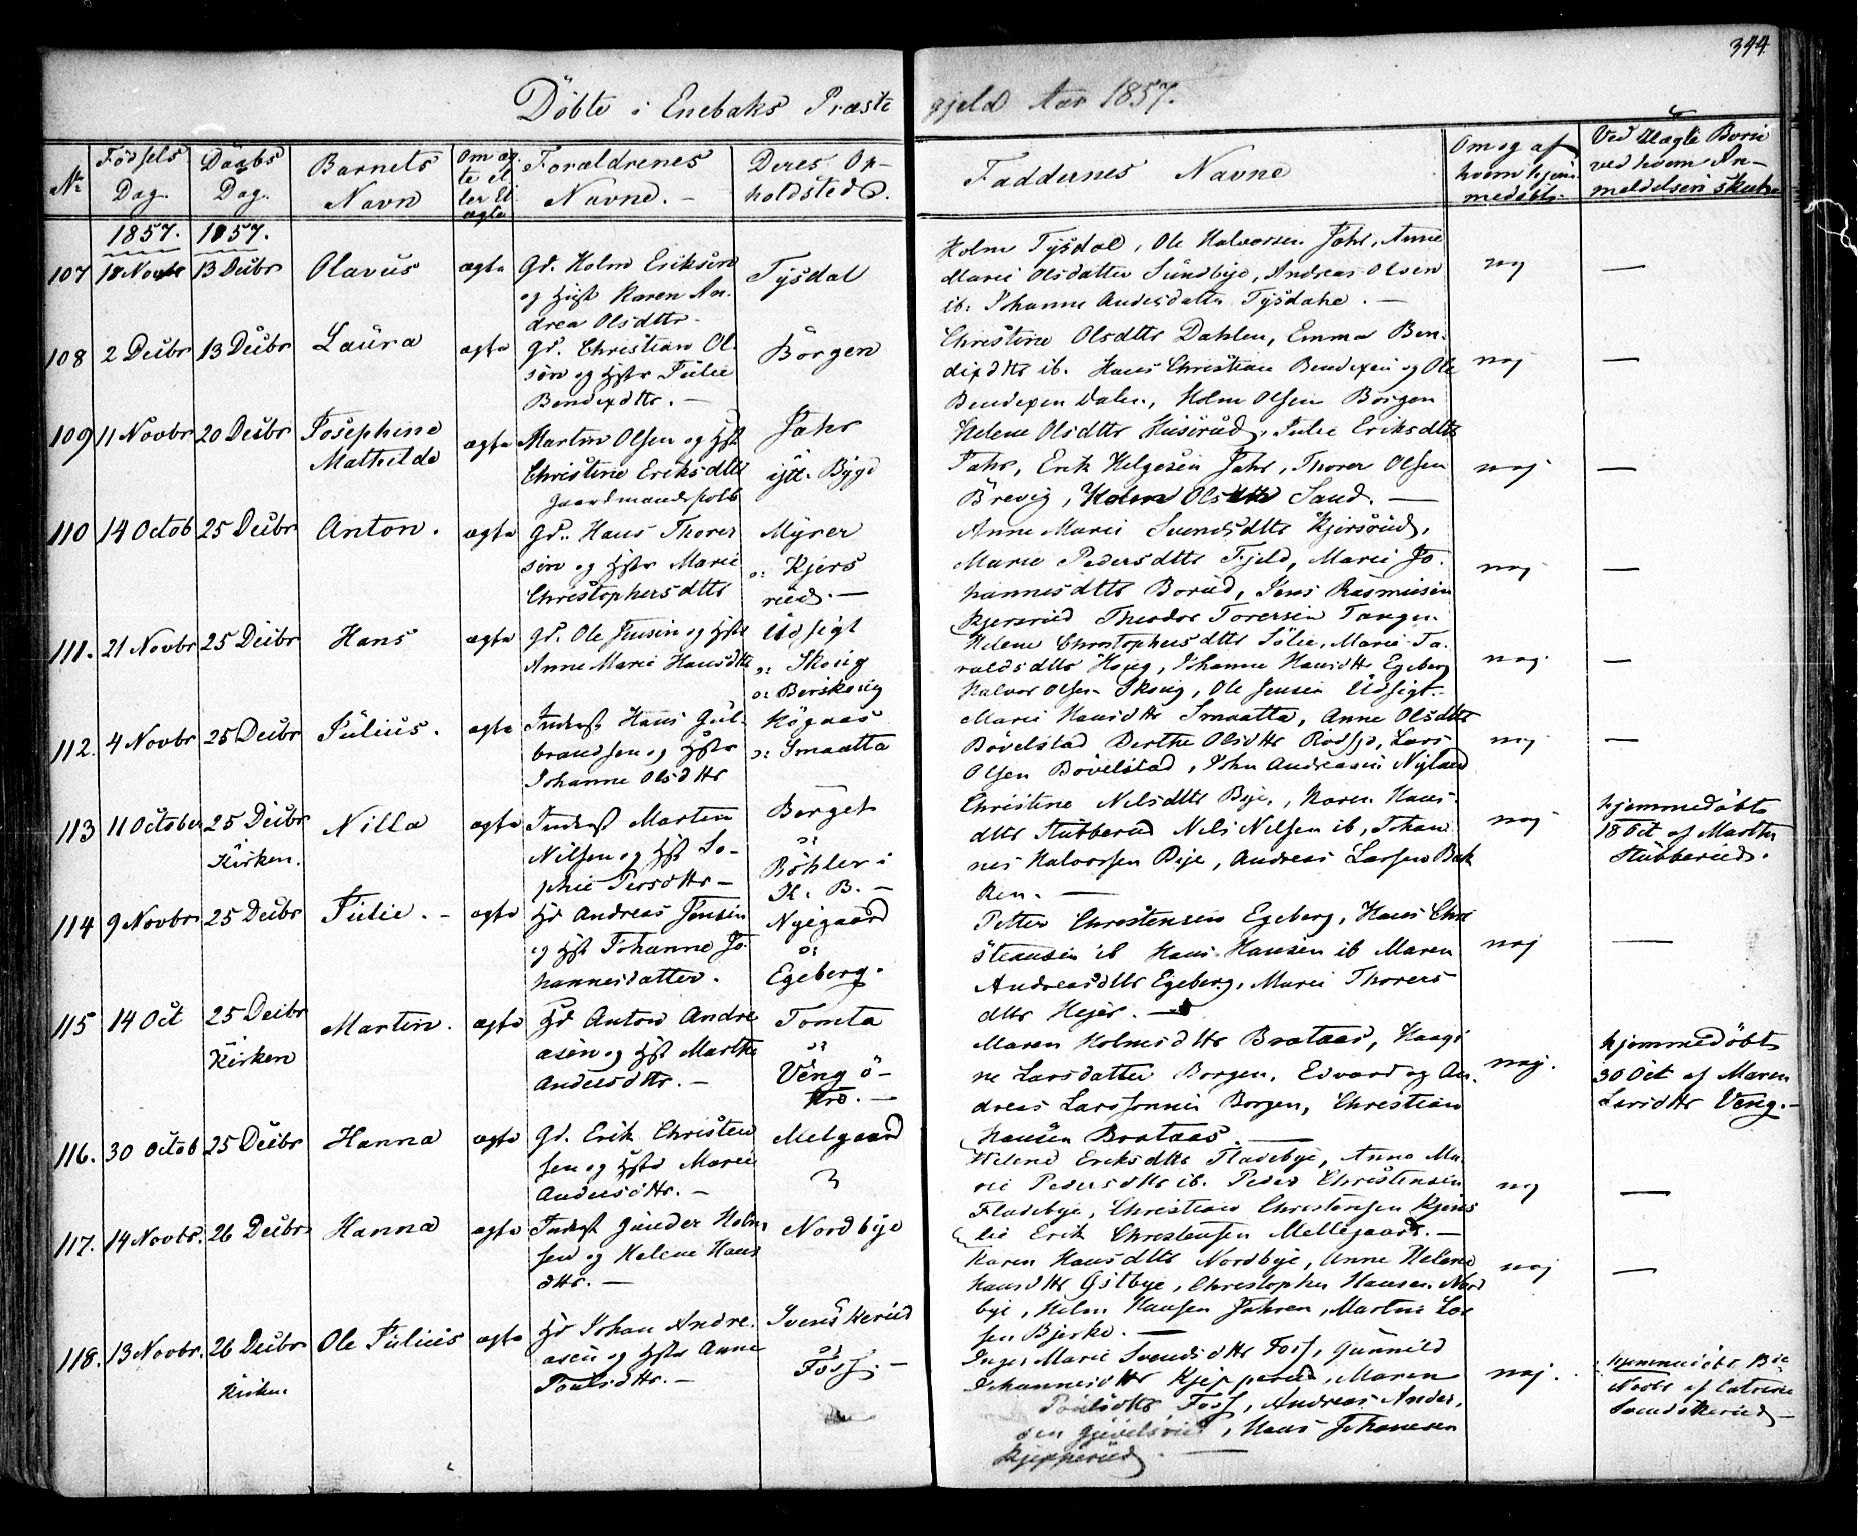 344
Döbte i Enebaks Præste gjeld Aar 1857.
No
Födsels Dag.
Daabs Dag.
Barnets Navn
Om ægte el ler U ægte
Forældrenes Navne. -
Deres Op- holdsted.
Faddernes Navne
Om og af hvem hjem medöbt
Ved Uægte Börn ved hvem An- meldelsen skeet
1857. 1857.
107 18 Novbr 13 Decbr Olavus ægte Gd. Holm Eriksen Tysdal
og Hust Karen An-
drea Olsdttr -
Holm Tysdal, Ole Halvorsen Jahr, Anne
Marie Olsdatter Sundbye, Andreas Olsen
ib. Johanne Andersdatter Tysdahl. -
nej —
108 2 Decbr 13 Decbr Laura ægte Gd. Christian Ol- Borgen
sen og Hstr Julie
Bendixdttr. -
Christine Olsdttr Dahlen, Emma Ben-
dixdttr ib. Hans Christian Bendixen og Ole
Bendixen Dalen, Holm Olsen Borgen
nej —
109 11 Novbr 20 Decbr Josephine Mathilde ægte Martin Olsen og Hst Jahr
Christine Eriksdttr ytt. Bygd
Gaardmandsfolk
Helene Olsdttr Huserud, Julie Eriksdttr
Jahr, Erik Helgesen Jahr, Thorer Olsen
Brevig, Holm Olsen Sand. —
nej —
110 14 Octob 25 Decbr Anton. ægte Gd. Hans Thorer Myrer
sen og Hstr Marie o: Kjers
Christophersdttr rud. —
Anne Marie Svendsdttr Kjersrud,
Marie Pedersdttr Fjeld, Marie Jo-
hannesdttr Borud, Jens Rasmusen
Kjersrud Theodor Torersen Tangen
nej —
111. 21 Novbr 25 Decbr Hans ægte Gd. Ole Jensen og Hstr Udsigt
Anne Marie Hansdttr o: Skoug
o: Berskoug
Helene Christophersdttr Sölie, Marie Ta-
raldsdttr Houg, Johanne Hansdttr Egeberg
Halvor Olsen Skoug, Ole Jensen Udsigt.
nej —
112. 4 Novbr 25 Decbr Julius. ægte Inderst Hans Gul- Högaas
brandsen og Hstr o: Smaatta
Johanne Olsdttr
Marie Hansdttr Smaatta, Anne Olsdttr
Bövelstad Berthe Olsdttr Rödsjö, Lars
Olsen Bövelstad, John Andreasen Nyland
nej —
113 11 October 25 Decbr Kirken. Nilla ægte Inderst Marten Börget
Nilsen og Hst So- o:
phie Persdttr — Böhler i
K. B. -
Christine Nilsdttr Bye, Karen Hans-
dttr Stubberud Nils Nilsen ib, Johan-
nes Halvorsen Bye, Andreas Larsen Bak
ken. —
nej
hjemmedöbt
18 Oct af Marthe
Stubberud.
114 9 Novbr 25 Decbr Julie. - ægte Hd Andreas Jensen Nyegaard
og Hst Johanne Jo- o:
hannesdatter. Egeberg.
Petter Christensen Egeberg, Hans Chri
stiansen ib Hans Hansen ib Maren
Andreasdttr Egeberg, Marie Thorers
dttr Hejer. —
nej —
115 14 Oct 25 Decbr Kirken Martin. ægte Hd Anton Andre Tomta
asen og Hst Marthe o:
Andersdttr. - Veng ö-
tre. -
Maren Holmsdttr Brataas, Haagi
ne Larsdatter Borgen, Edvard og An-
dreas Larssönner Borgen, Christian
Hansen Brataas. —
nej.
hjemmedöbt
30 Oct af Maren
Larsdttr Veng. -
116. 30 Octob 25 Decbr Hanna ægte Gd. Erik Christen Melgaard
sen og Hstr Marie
Andersdttr. -
Helene Eriksdttr Fladebye, Anne Ma-
rie Pedersdttr ib. Peder Christensen
Fladebye, Christian Christensen Kjens
lie Erik Christensen Mellegaard. -
nej —
117. 14 Novbr. 26 Decbr Hanna ægte Inderst Gunder Holm Nordbye
sen og Helene Hans
dttr. —
Karen Hansdttr Nordbye, Anne Helene
Hansdttr Östbye, Christopher Hansen Nord
bye, Holm Hansen Jahren, Martne Lar
sen Bjerke. —
nej —
118. 13 Novbr. 26 Decbr Kirken Ole Julius ægte Hd Johan Andre- Svenskerud
asen og Hstr Anne o:
Poulsdttr. - Foss. -
Inger Marie Svendsdttr Foss, Gunnild
Johannesdttr Kjepperud, Maren
Poulsdttr Foss, Andreas Ander-
sen Gjevelsrud, Hans Johannesen
Kjepperud. —
nej.
hjemmedöbt
Novbr af Catrine
Svendskerud -